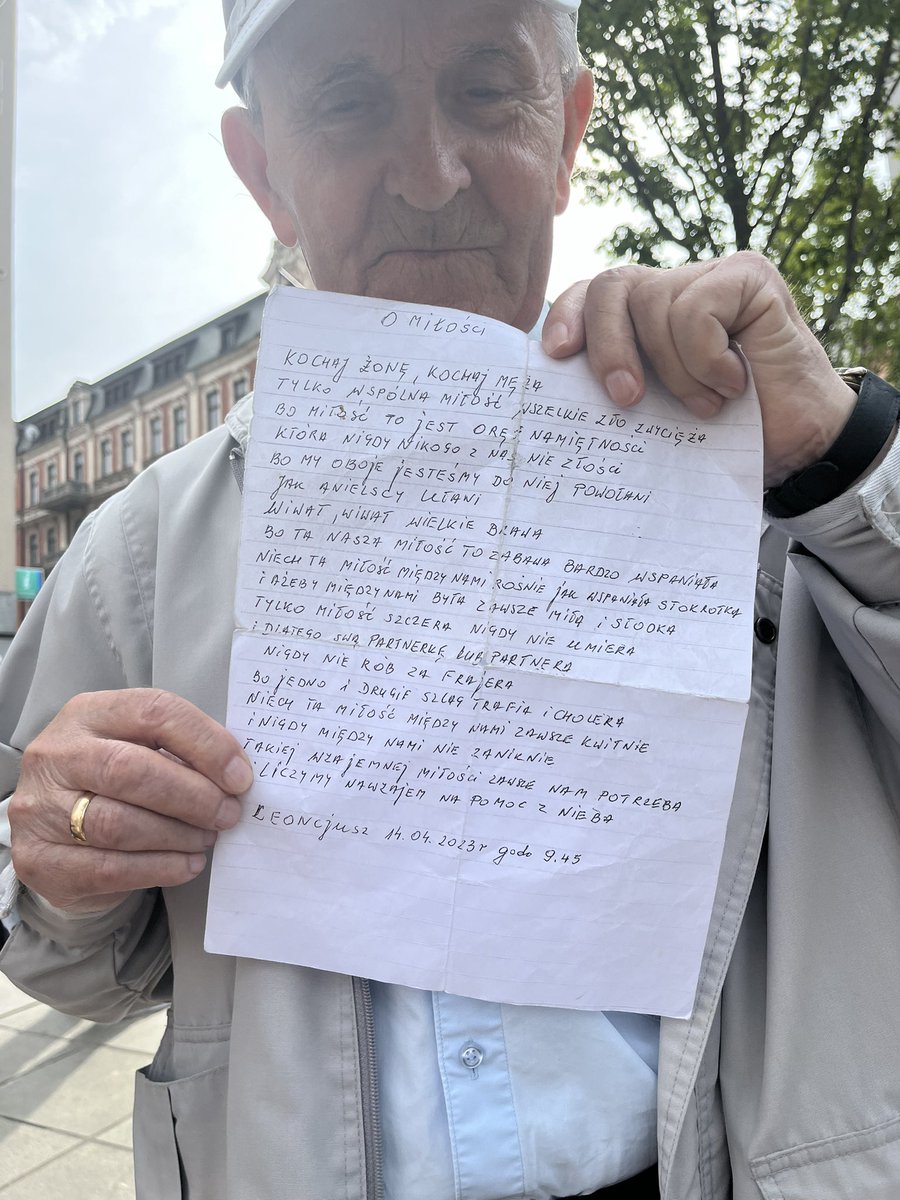 O MIŁOŚCI
KOCHAJ ŻONĘ, KOCHAJ MĘŻA
TYLKO WSPÓLNA MIŁOŚĆ WSZELKIE ZŁO ZWYCIĘŻA
BO MIŁOŚĆ TO JEST ORĘŻ NAMIĘTNOŚCI
KTÓRA NIGDY NIKOGO Z NAS NIE ZŁOŚCI
BO MY OBOJE JESTEŚMY DO NIEJ POWOŁANI
JAK ANIELSCY UŁANI
WIWAT, WIWAT WIELKIE BRAWA
BO TA NASZA MIŁOŚĆ TO ZABAWA BARDZO WSPANIAŁA
NIECH TA MIŁOŚĆ MIĘDZY NAMI ROŚNIE JAK WSPANIAŁA STOKROTKA
I AŻEBY MIĘDZY NAMI BYŁA ZAWSZE MIŁA I SŁODKA
TYLKO MIŁOŚĆ SZCZERA NIGDY NIE UMIERA
I DLATEGO SWĄ PARTNERKĘ LUB PARTNERA
NIGDY NIE RÓB ZA FRAJERA
BO JEDNO I DRUGIE SZLAG TRAFIA I CHOLERA
NIECH TA MIŁOŚĆ MIĘDZY NAMI ZAWSZE KWITNIE
I NIGDY MIĘDZY NAMI NIE ZANIKNIE
TAKIEJ WZAJEMNEJ MIŁOŚCI ZAWSZE NAM POTRZEBA
I LICZYMY NAWZAJEM NA POMOC Z NIEBA
LEONCJUSZ 14.04.2023r godz 9.45